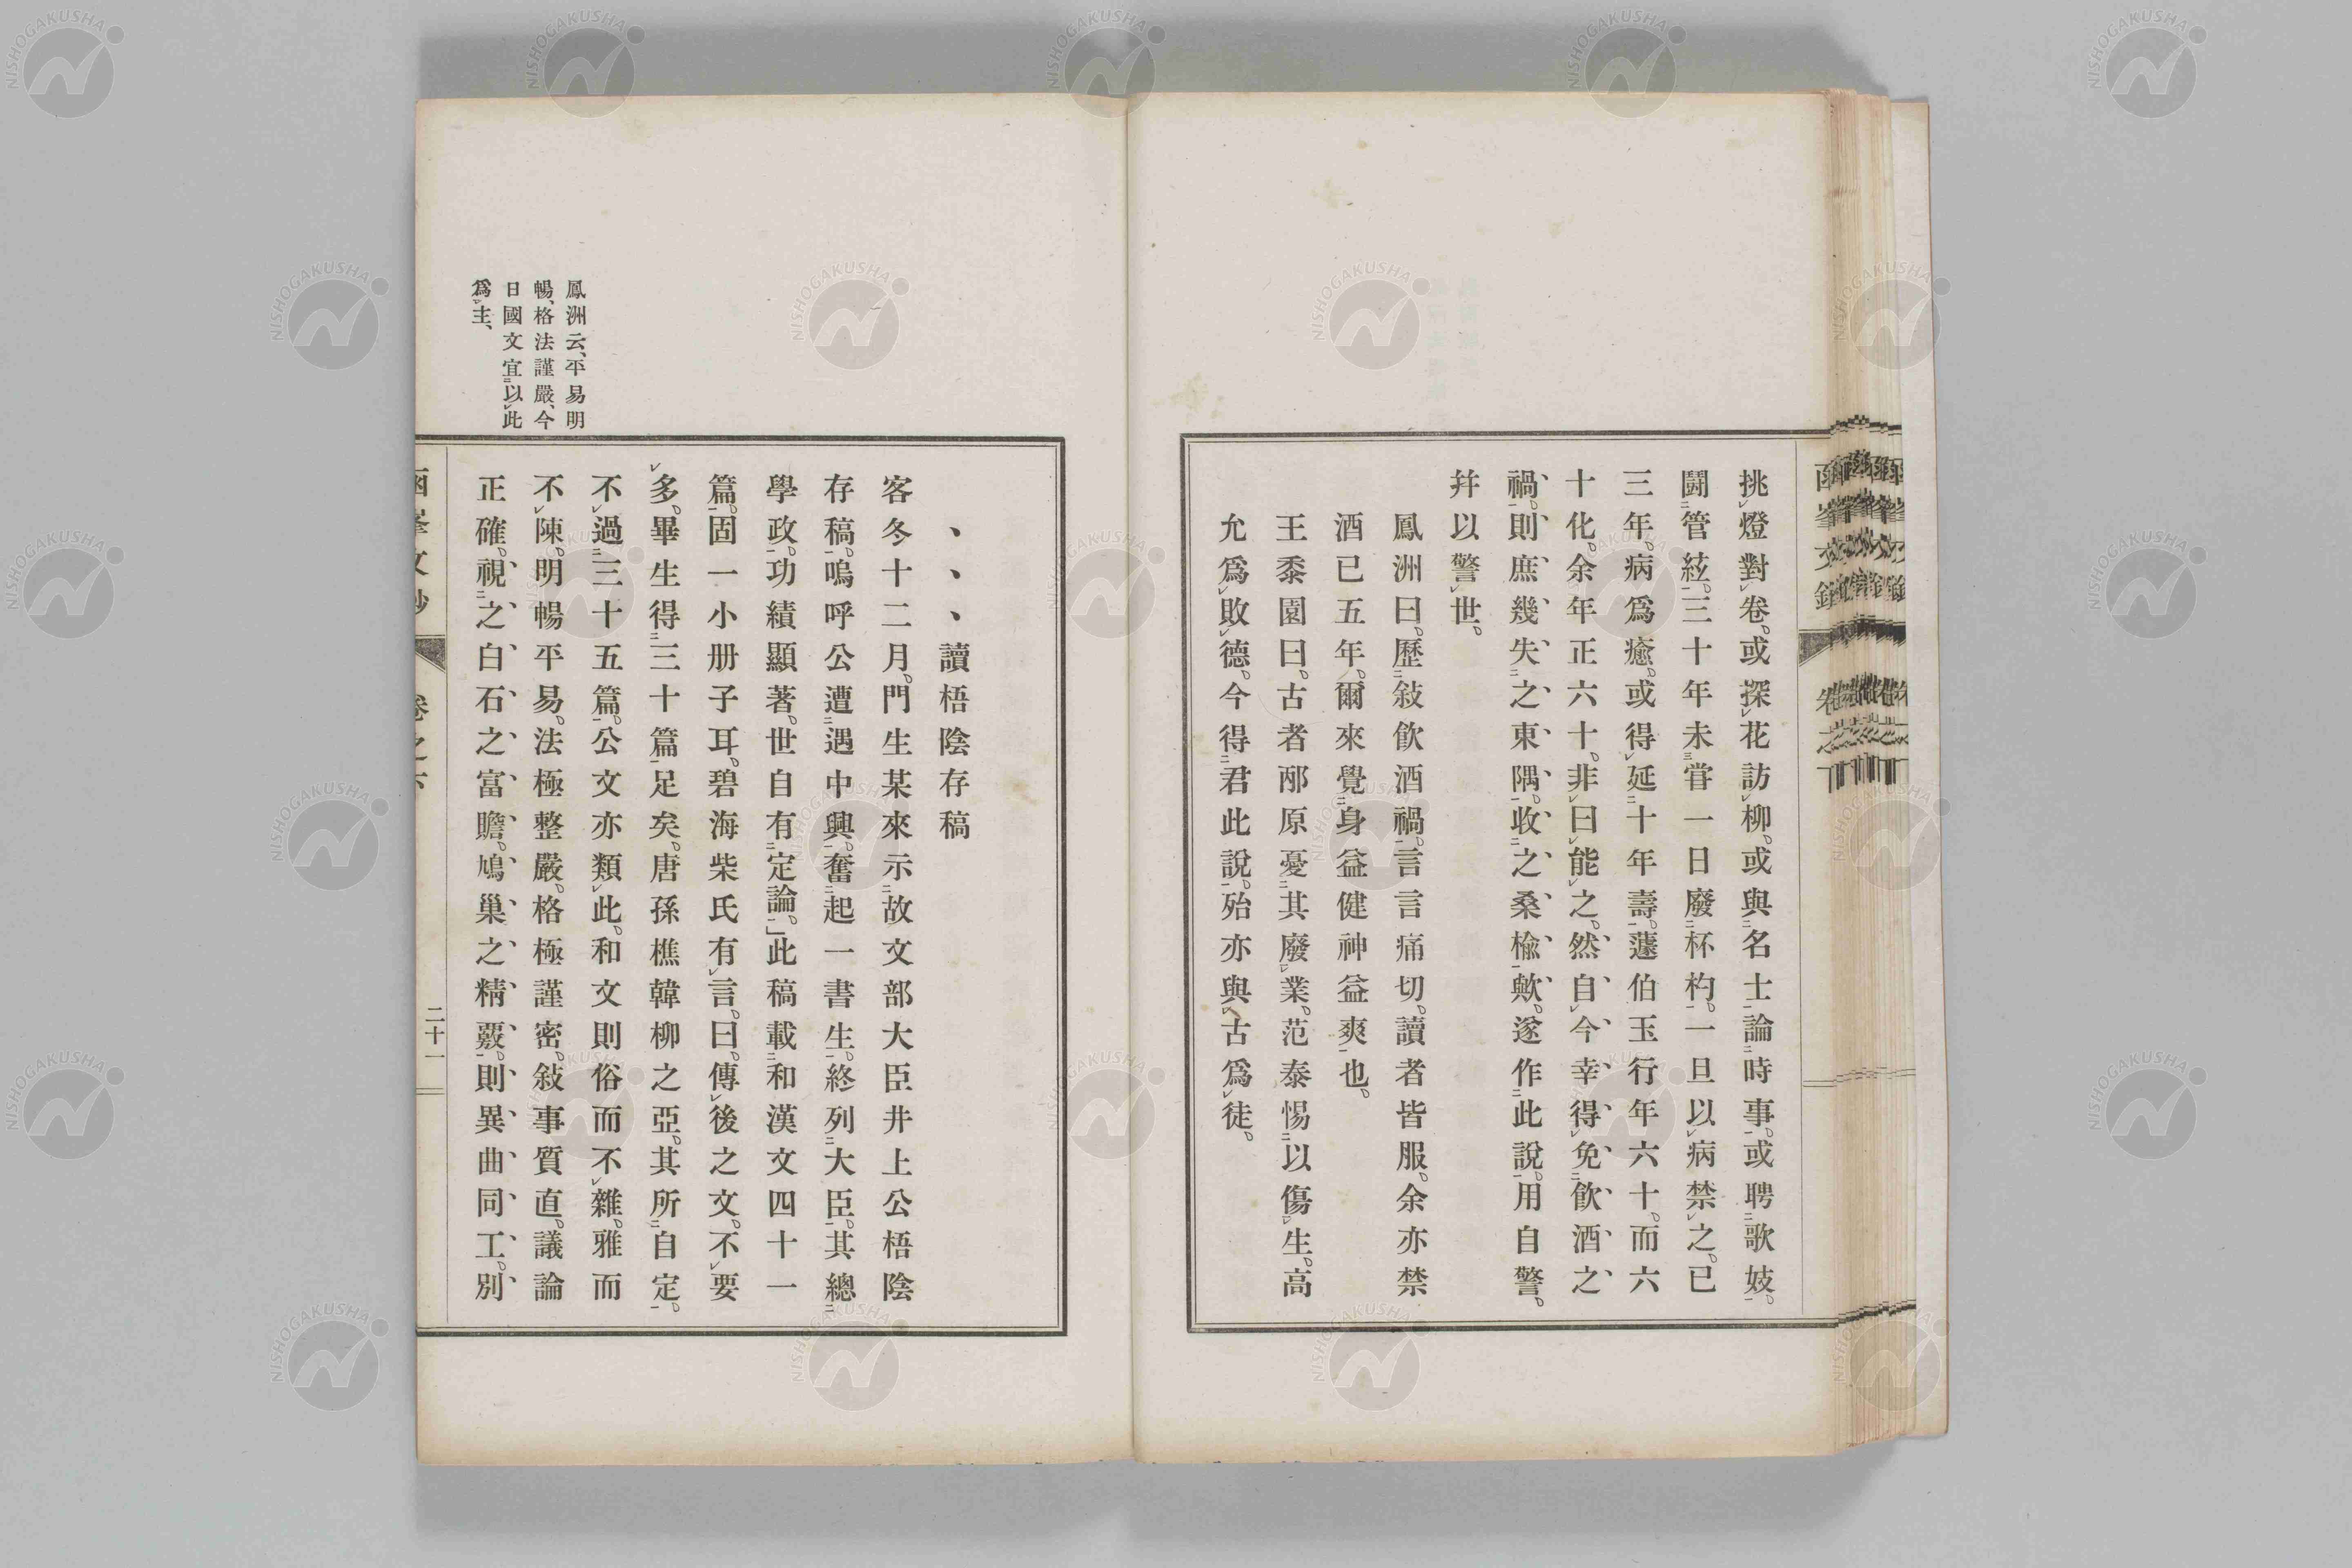 挑燈對卷。或探花訪柳。或與名士論時事。或聘歌妓。
鬪管絃。三十年未嘗一日廢杯杓。一旦以病禁之。已
三年。病爲癒。或得延十年壽。蘧伯玉行年六十。而六
十化。余年正六十。非曰能之。然自今幸得免飮酒之
禍。則庶幾失之東隅。收之桑楡歟。遂作此說。用自警。
幷以警世。
鳳洲曰。歷敍飮酒禍。言言痛切。讀者皆服。余亦禁
酒已五年。爾來覺身益健神益爽也。
王黍園曰。古者邴原憂其廢業。范泰惕以傷生。高
允爲敗德。今得君此說。殆亦與古爲徒。
、、、讀梧陰存稿
客冬十二月。門生某來示故文部大臣井上公梧陰
存稿。嗚呼公遭遇中興。奮起一書生。終列大臣。其總
學政。功績顯著。世自有定論。」此稿載和漢文四十一
篇。固一小册子耳。碧海柴氏有言。曰。傳後之文。不要
多。畢生得三十篇足矣。唐孫樵韓柳之亞。其所自定。
不過三十五篇。公文亦類此。和文則俗而不雜。雅而
不陳。明暢平易。法極整嚴。格極謹密。敍事質直。議論
正確。視之白石之富贍。鳩巢之精覈。則異曲同工。別
鳳洲云、平易明
暢、格法謹嚴、今
日國文宜以此
爲主、
函峯文鈔
卷之下
二十一
NISHOGAKUSHA